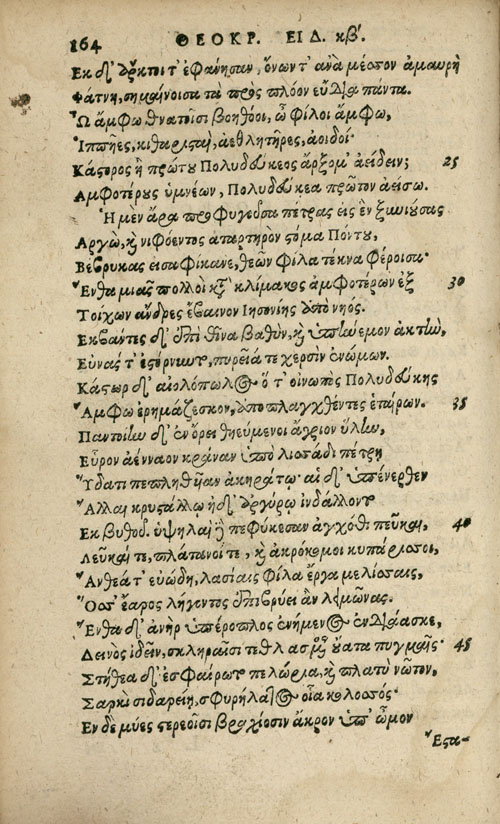 164 ΘΕΟΚΡ. ΕΙΔ. κβ′.
Εκ δ' ἄρκτοι τ' ἐφάνησαν, ὄνων τ' ἀνὰ μέσσον ἀμαυρὴ
Φάτνη, σημαίνοισα τὰ πρὸς πλόον εὔδια πάντα.
Ὦ ἄμφω θνατοῖσι βοηθόοι, ὦ φίλοι ἄμφω,
Ἱππῆες, κιθαρισταὶ, ἀεθλητῆρες, ἀοιδοί·
Κάστορος ἢ πρώτου Πολυδεύκεος ἄρξομ' ἀείδειν; 25
Αμφοτέρους ὑμνέων, Πολυδεύκεα πρῶτον ἀείσω.
Ἡ μὲν ἄρα προφυγοῦσα πέτρας εἰς ἓν ξυνιούσας
Αργὼ, καὶ νιφόεντος ἀταρτηρὸν στόμα Πόντου,
Βέβρυκας εἰσαφίκανε, θεῶν φίλα τέκνα φέροισα·
Ἔνθα μιᾶς πολλοὶ κατὰ κλίμακος ἀμφοτέρων ἐξ 30
Τοίχων ἄνδρες ἔβαινον Ιησονίης ἀπὸ νηός.
Εκβάντες δ' ἐπὶ θῖνα βαθὺν, καὶ ὑπήνεμον ἀκτὴν,
Εὐνάς τ' ἐστόρνυντ, πυρεῖά τε χερσὶν ἐνώμων.
Κάστωρ δ' αἰολόπωλος ὅ τ' οἰνωπὸς Πολυδεύκης
Ἄμφω ἐρημάζεσκον, ἀποπλαγχθέντες ἑταίρων. 35
Παντοίην δ' ἐν ὄρει θηεύμενοι ἄγριον ὕλην,
Εὗρον ἀένναον κράναν ὑπὸ λισσάδι πέτρῃ
Ὕδατι πεπληθυῖαν ἀκηράτῳ· αἱ δ' ὑπένερθεν
Ἄλλαι κρυστάλλῳ ἠδ' ἀργύρῳ ἰνδάλλοντο
Εκ βυθοῦ. ὑψηλαὶ δὲ πεφύκεσαν ἀγχόθι πεῦκαι, 40
Λεῦκαί τε, πλάτανοί τε, καὶ ἀκρόκομοι κυπάρισσοι,
Ἄνθεά τ' εὐώδη, λασίαις φίλα ἔργα μελίσσαις,
Ὅσσ' ἔαρος λήγοντος ἐπιβρύει ἂν λειμῶνας.
Ἔνθα δ' ἀνὴρ ὑπέροπλος ἐνήμενος ἐνδιάασκε,
Δεινὸς ἰδεῖν, σκληραῖσι τεθλασμένος οὔατα πυγμαῖς· 45
Στήθεα δ' ἐσφαίρωτο πελώρια, καὶ πλατὺ νῶτον,
Σαρκὶ σιδαρείῃ, σφυρήλατος οἷα κολοσσός·
Εν δὲ μύες στερεοῖσι βραχίοσιν ἄκρον ὑπ' ὦμον
Ἔστα-